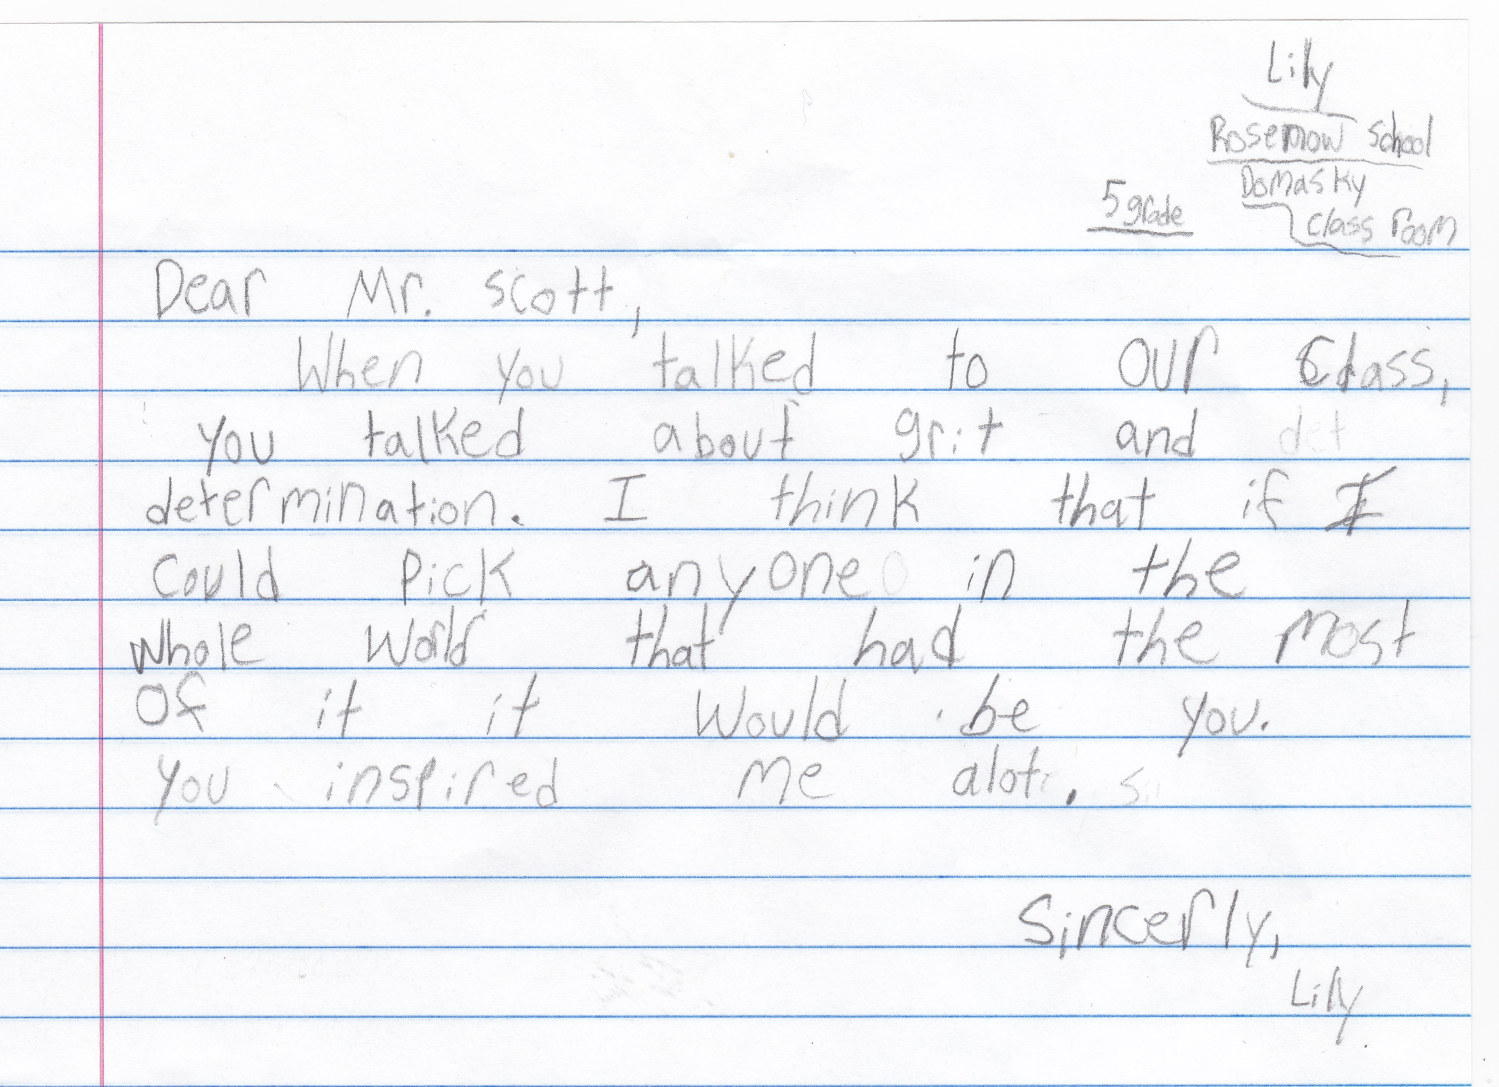 Lily
Rosemow School
Domasky
5 grade
class room
Dear Mr. Scott,
When you talked to our Class,
you talked about grit and det
determination. I think that if I
could pick anyone in the
whole world that had the most
of it it would be you.
you inspired me alot.
Sincerly,
Lily